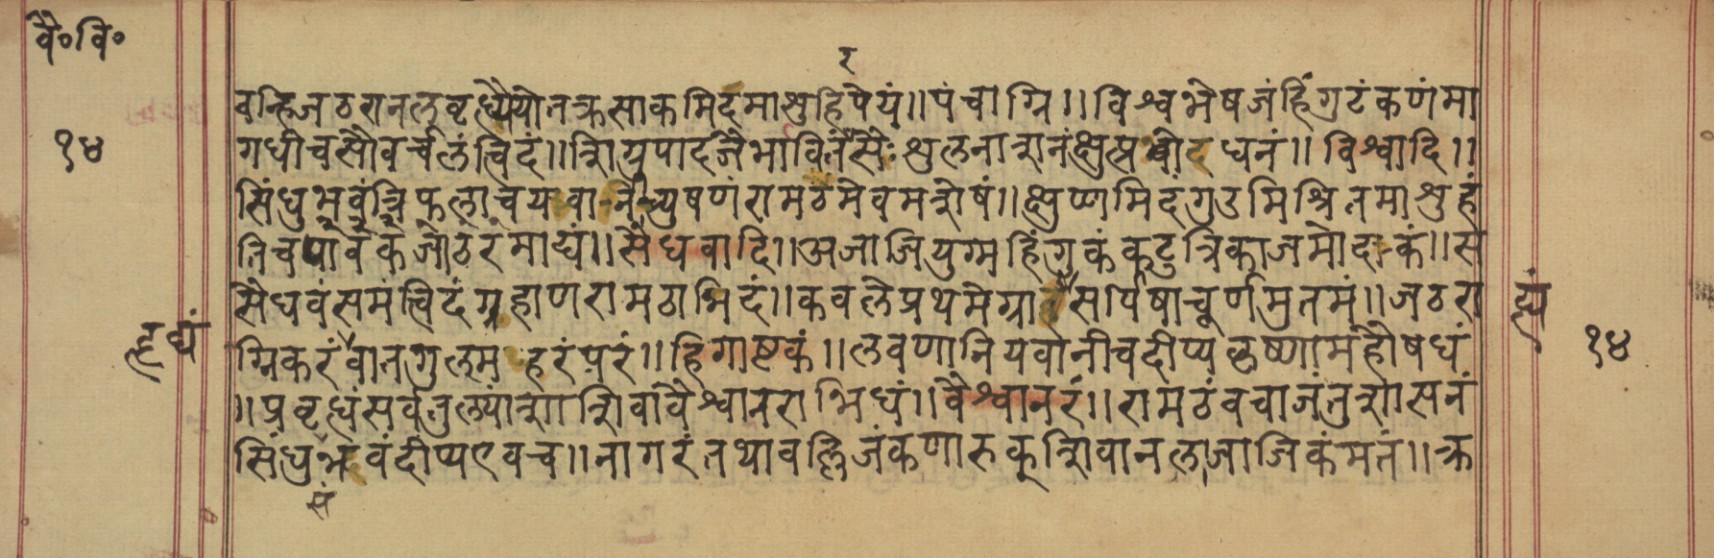 वै॰ वि॰
र
वन्हिजठरानलवृध्यैयोतक्रसाकमिदमाशुहिपेयं॥पंचाग्नि॥विश्वभेषजंहिंगुटंकणंमा
१४
गधीचसौवर्चलंत्विदं॥शिग्रुपादजैर्भावितंरसैः शुलनाशनंक्षुत्प्रबोधनं॥विश्वादि॥
सिंधुभवंत्रिफलाचयवानीत्र्युषणंरामठमेवमशेषं॥क्षुण्णमिदंगुउमिश्रितमाशुहं
तिचपावकजाठरमाद्यं॥सैंधवादि॥अजाजियुग्महिंगुकंकटुत्रिकाजमोदाकं॥स
सैंधवंसमंत्विदंगृहाणरामठाभिदं॥कवलेप्रथमेग्रासर्पिषाचूर्णमुतमं॥जठरा
ह्यं
हृद्यं
ग्निकरंवातगुलमहरंपरं॥हिगाष्टकं॥लवणानियवानीचदीप्यकृष्णामहौषधं
१४
॥प्रवृध्धंसर्वतुल्यांशाशिवावैश्वानराभिधं॥वैश्वानरं॥रामठंवचाजंतुशासनं
सिंधुभवंदीप्यएवच॥नागरंतथावल्लिजंकणारुकशिवानलाजाजिकंमतं॥क्र
सं